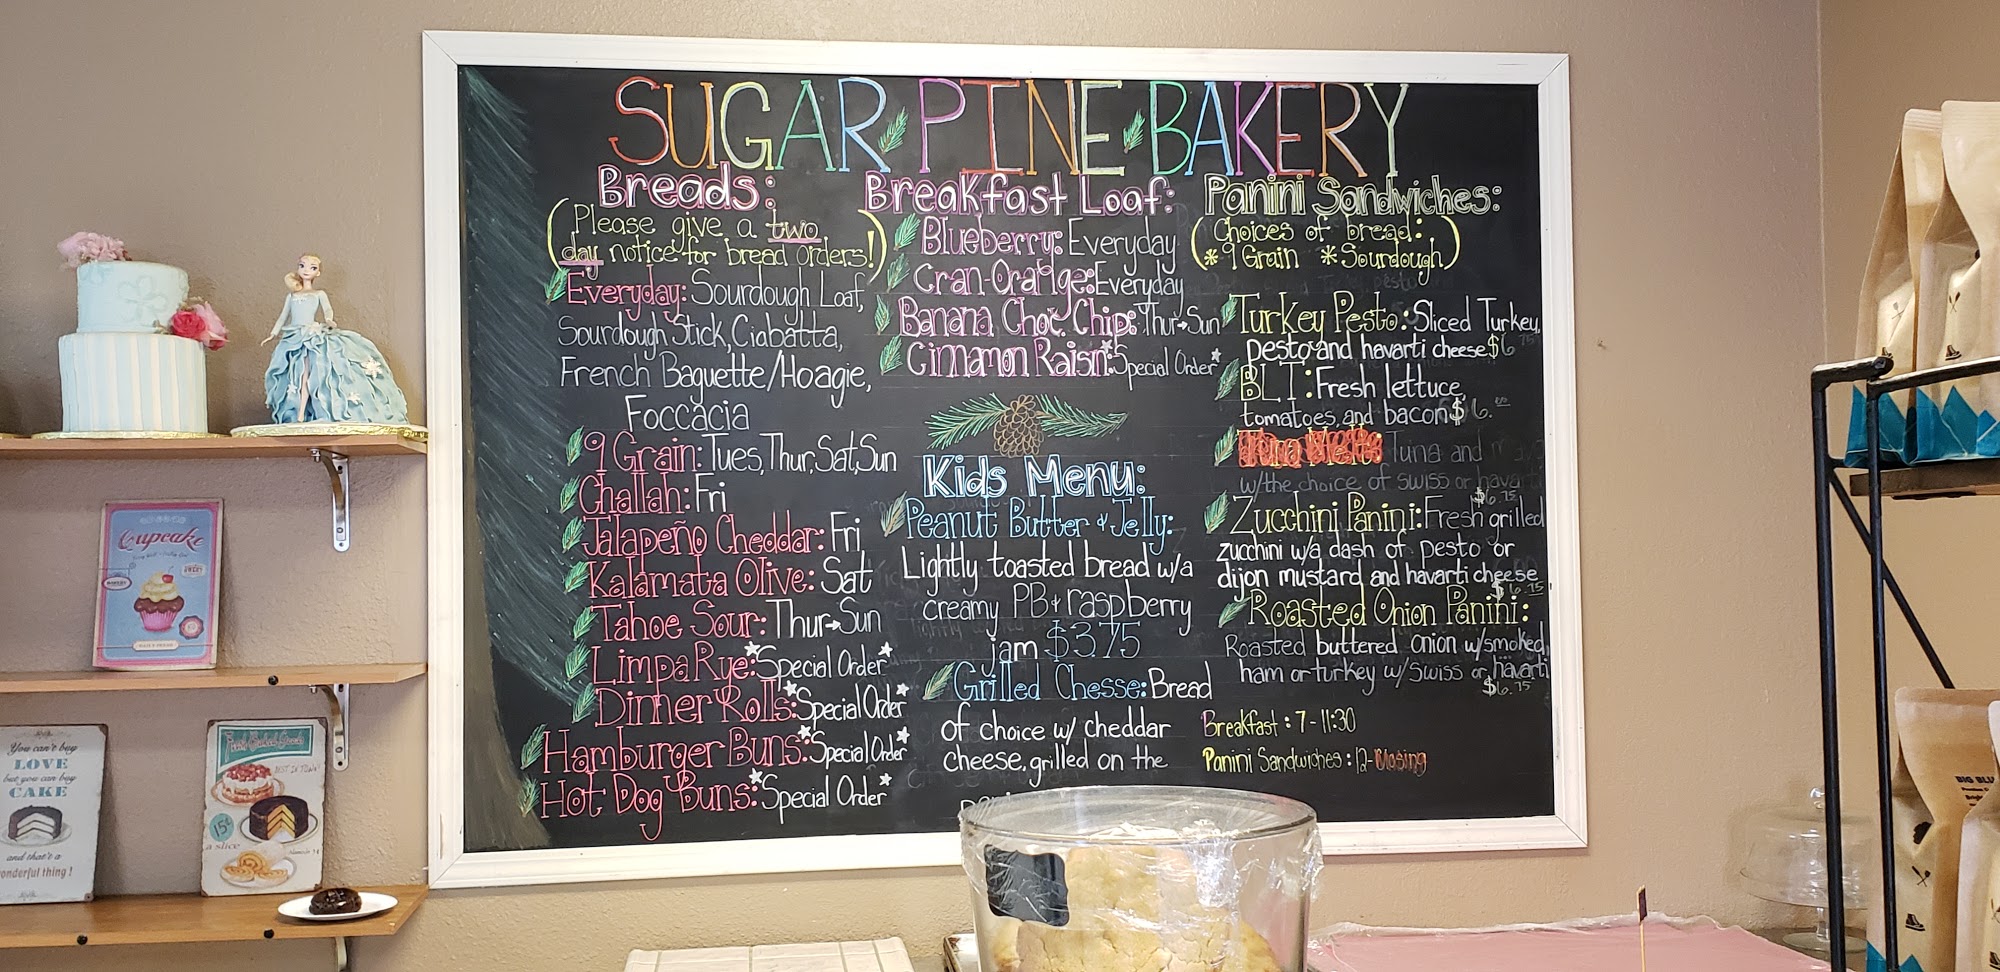 SUGAR PINE BAKERY
Breads:
(Please give a two
day notice for bread orders!)
Everyday: Sourdough Loaf,
Sourdough Stick, Ciabatta,
French Baguette/Hoagie,
Foccacia
9 Grain: Tues, Thur, Sat, Sun
Challah: Fri
Jalapeño Cheddar: Fri
Kalamata Olive: Sat
Tahoe Sour: Thur→Sun
Limpa Rye: *Special Order*
Dinner Rolls: *Special Order*
Hamburger Buns: *Special Order*
Hot Dog Buns: *Special Order*
Breakfast Loaf:
Blueberry: Everyday
Cran-Orange: Everyday
Banana Choc Chip: Thur→Sun
Cinnamon Raisin: *Special Order*
Kids Menu:
Peanut Butter & Jelly:
Lightly toasted bread w/a
creamy PB & raspberry
jam $3.75
Grilled Chesse: Bread
of choice w/ cheddar
cheese, grilled on the
Panini Sandwiches:
(Choices of bread:
*9 Grain *Sourdough)
Turkey Pesto: Sliced Turkey,
pesto and havarti cheese $6.75
BLT: Fresh lettuce,
tomatoes, and bacon $6.
Tuna Melt: Tuna and
w/the choice of swiss or havarti
$6.75
Zucchini Panini: Fresh grilled
zucchini w/a dash of pesto or
dijon mustard and havarti cheese
$6.75
Roasted Onion Panini:
Roasted buttered onion w/smoked
ham or turkey w/ swiss or havarti
$6.75
Breakfast: 7-11:30
Panini Sandwiches: 12-
Cupcake
You can't buy
LOVE
but you can buy
CAKE
and that's a
wonderful thing!
Fresh Baked Goods
BEST IN TOWN
15¢
a slice
BIG BLU